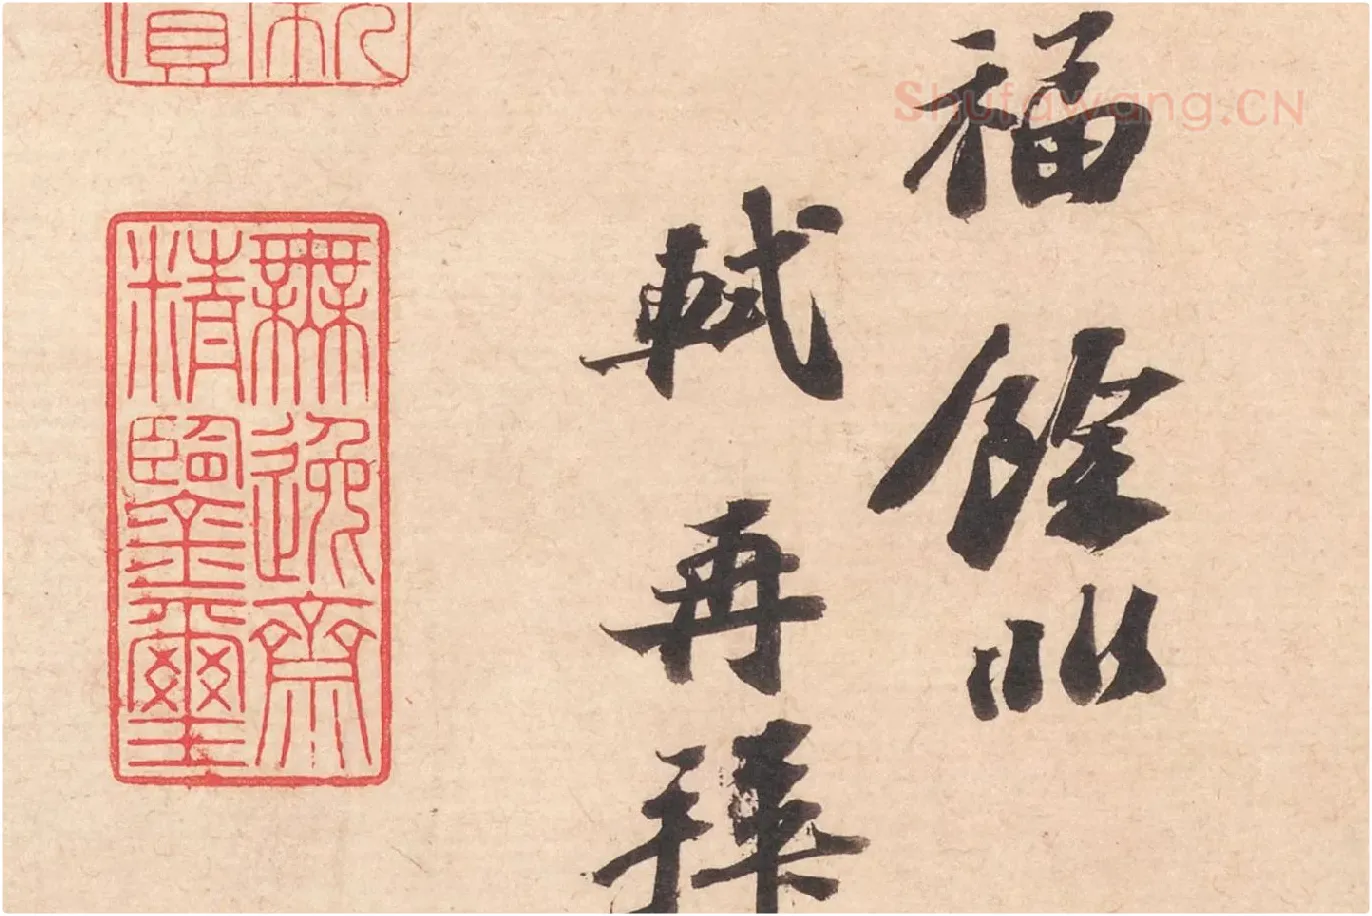 福餘非
軾再拜
無逸齋
精鑒璽
Shufawang.CN